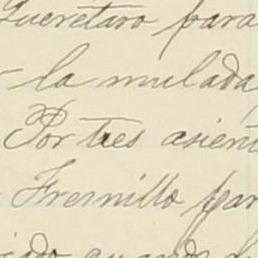 Queretaro para
- la mulada
Por tres asient
Fresnillo par